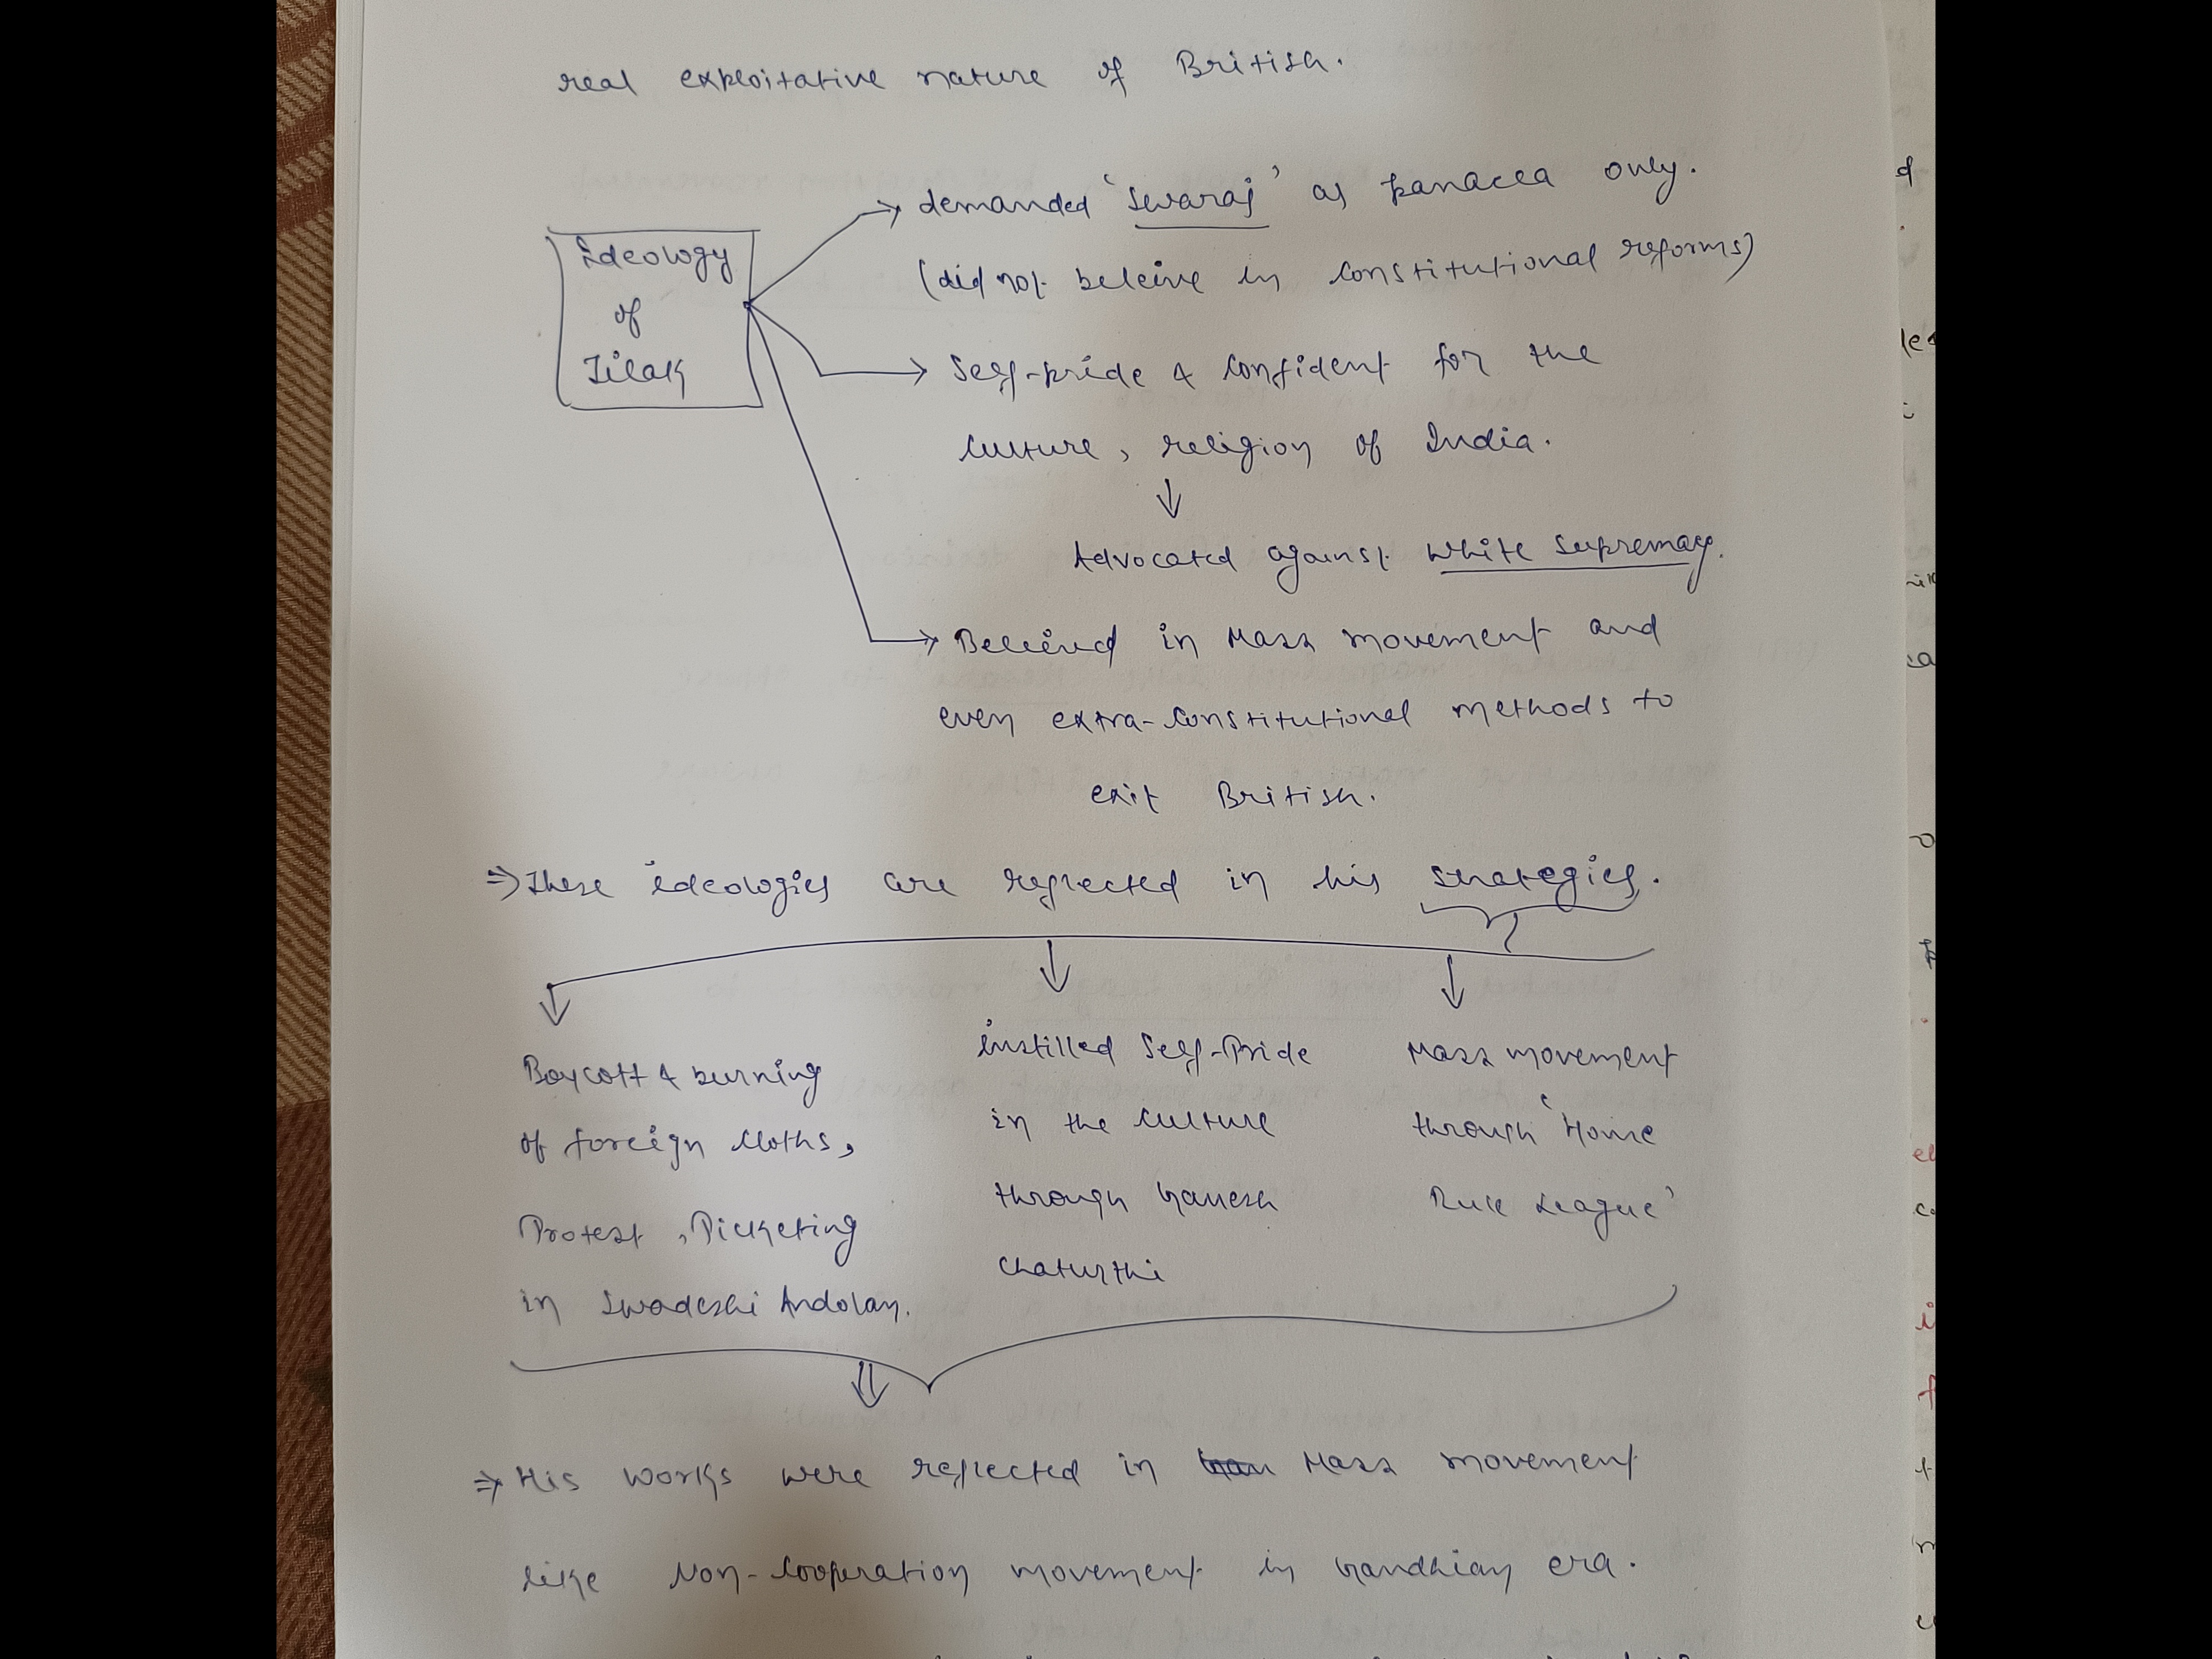 real exploitative nature of British.
Ideology
of
Tilak
demanded 'Swaraj' as panacea only.
(did not beleive in constitutional reforms)
Self-pride & confident for the
culture, religion of India.
Advocated against white supremacy.
Believed in Mass movement and
even extra-constitutional methods to
exit British.
⇒ These ideologies are reflected in his strategies.
Boycott & burning
of foreign cloths,
Protest, Picketing
in Swadeshi Andolan.
instilled Self-Pride
in the culture
through Ganesh
Chaturthi
Mass movement
through 'Home
Rule League'
⇒ His works were reflected in Mass movement
like Non-Cooperation movement in Gandhian era.